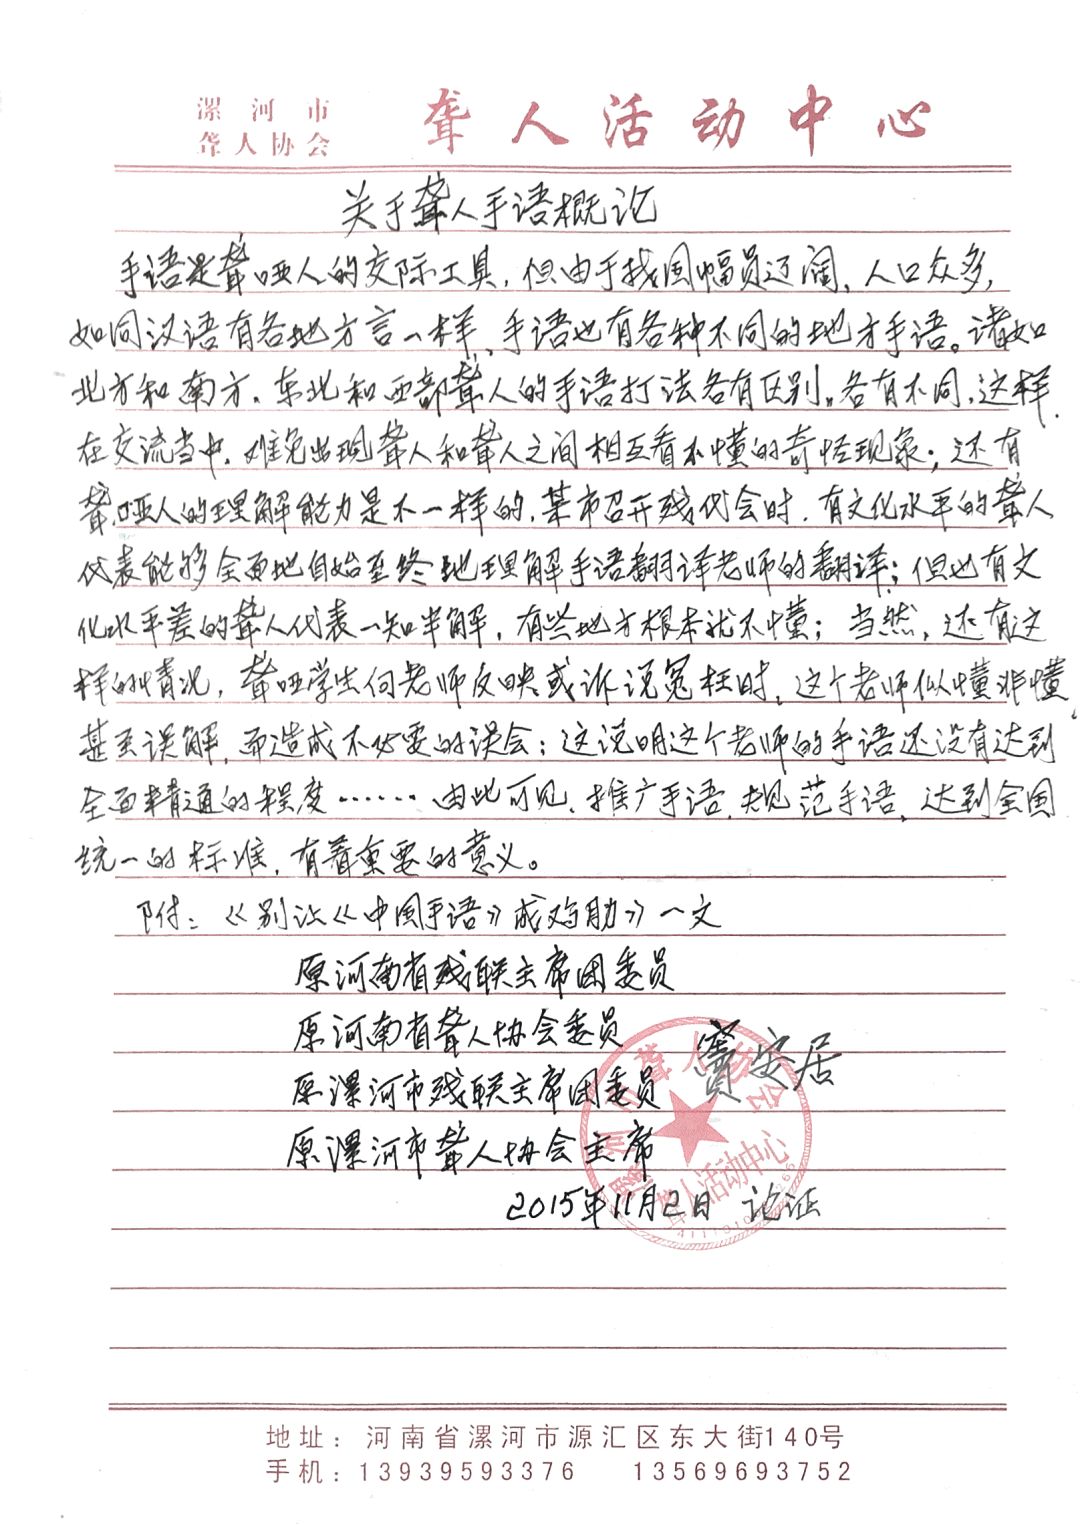 漯河市
聋人协会
聋人活动中心
关于聋人手语概论
手语是聋哑人的交际工具，但由于我国幅员辽阔，人口众多，
如同汉语有各地方言一样，手语也有各种不同的地方手语。诸如
北方和南方，东北和西部聋人的手语打法各有区别。各有不同，这样，
在交流当中，难免出现聋人和聋人之间相互看不懂的奇怪现象；还有
聋哑人的理解能力是不一样的，某市召开残代会时，有文化水平的聋人
代表能够全面地自始至终地理解手语翻译老师的翻译；但也有文
化水平差的聋人代表一知半解，有些地方根本就不懂；当然，还有这
样的情况，聋哑学生向老师反映或诉说冤枉时，这个老师似懂非懂，
甚至误解，而造成不必要的误会；这说明这个老师的手语还没有达到
全面精通的程度……由此可见，推广手语，规范手语，达到全国
统一的标准，有着重要的意义。
附：《别让《中国手语》成鸡肋》一文
原河南省残联主席团委员
原河南省聋人协会委员
窦安居
原漯河市残联主席团委员
原漯河市聋人协会主席
2015年11月2日 论证
漯河市聋人协会
聋人活动中心
地址：河南省漯河市源汇区东大街140号
手机：13939593376 13569693752